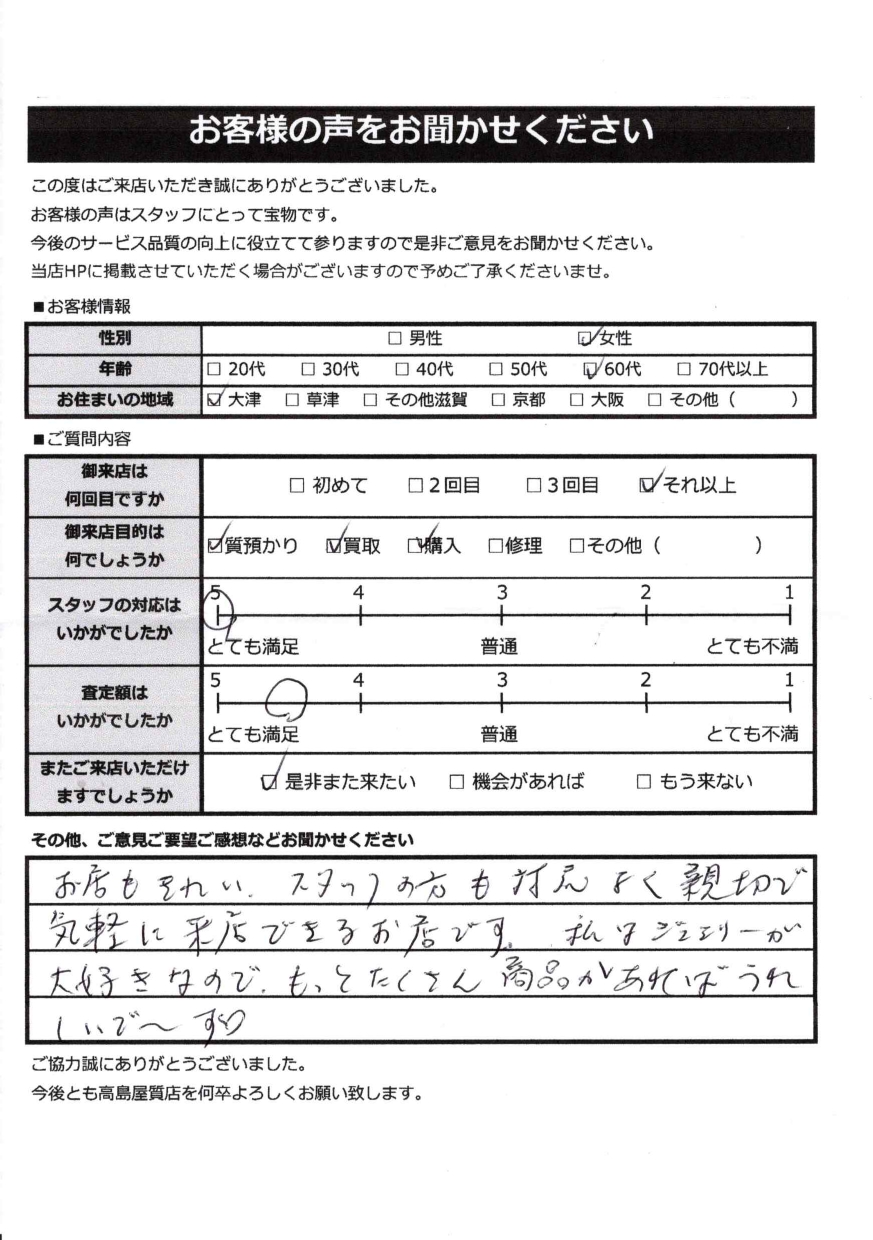 お客様の声をお聞かせください
この度はご来店いただき誠にありがとうございました。
お客様の声はスタッフにとって宝物です。
今後のサービス品質の向上に役立てて参りますので是非ご意見をお聞かせください。
当店HPに掲載させていただく場合がございますので予めご了承くださいませ。
■お客様情報
性別 □ 男性 ☑ 女性
年齢 □ 20代 □ 30代 □ 40代 □ 50代 ☑ 60代 □ 70代以上
お住まいの地域 ☑ 大津 □ 草津 □ その他滋賀 □ 京都 □ 大阪 □ その他（ ）
■ご質問内容
御来店は
何回目ですか
□ 初めて □２回目 □３回目 ☑それ以上
御来店目的は
何でしょうか
☑質預かり ☑買取 ☑購入 □修理 □その他（ ）
スタッフの対応は
いかがでしたか
5 4 3 2 1
とても満足 普通 とても不満
査定額は
いかがでしたか
5 4 3 2 1
とても満足 普通 とても不満
またご来店いただけ
ますでしょうか
☑ 是非また来たい □ 機会があれば □ もう来ない
その他、ご意見ご要望ご感想などお聞かせください
お店もきれい。スタッフの方も対応よく親切で
気軽に来店できるお店です。私はジュエリーが
大好きなので、もっとたくさん商品があればうれ
しいで〜す♡
ご協力誠にありがとうございました。
今後とも高島屋質店を何卒よろしくお願い致します。